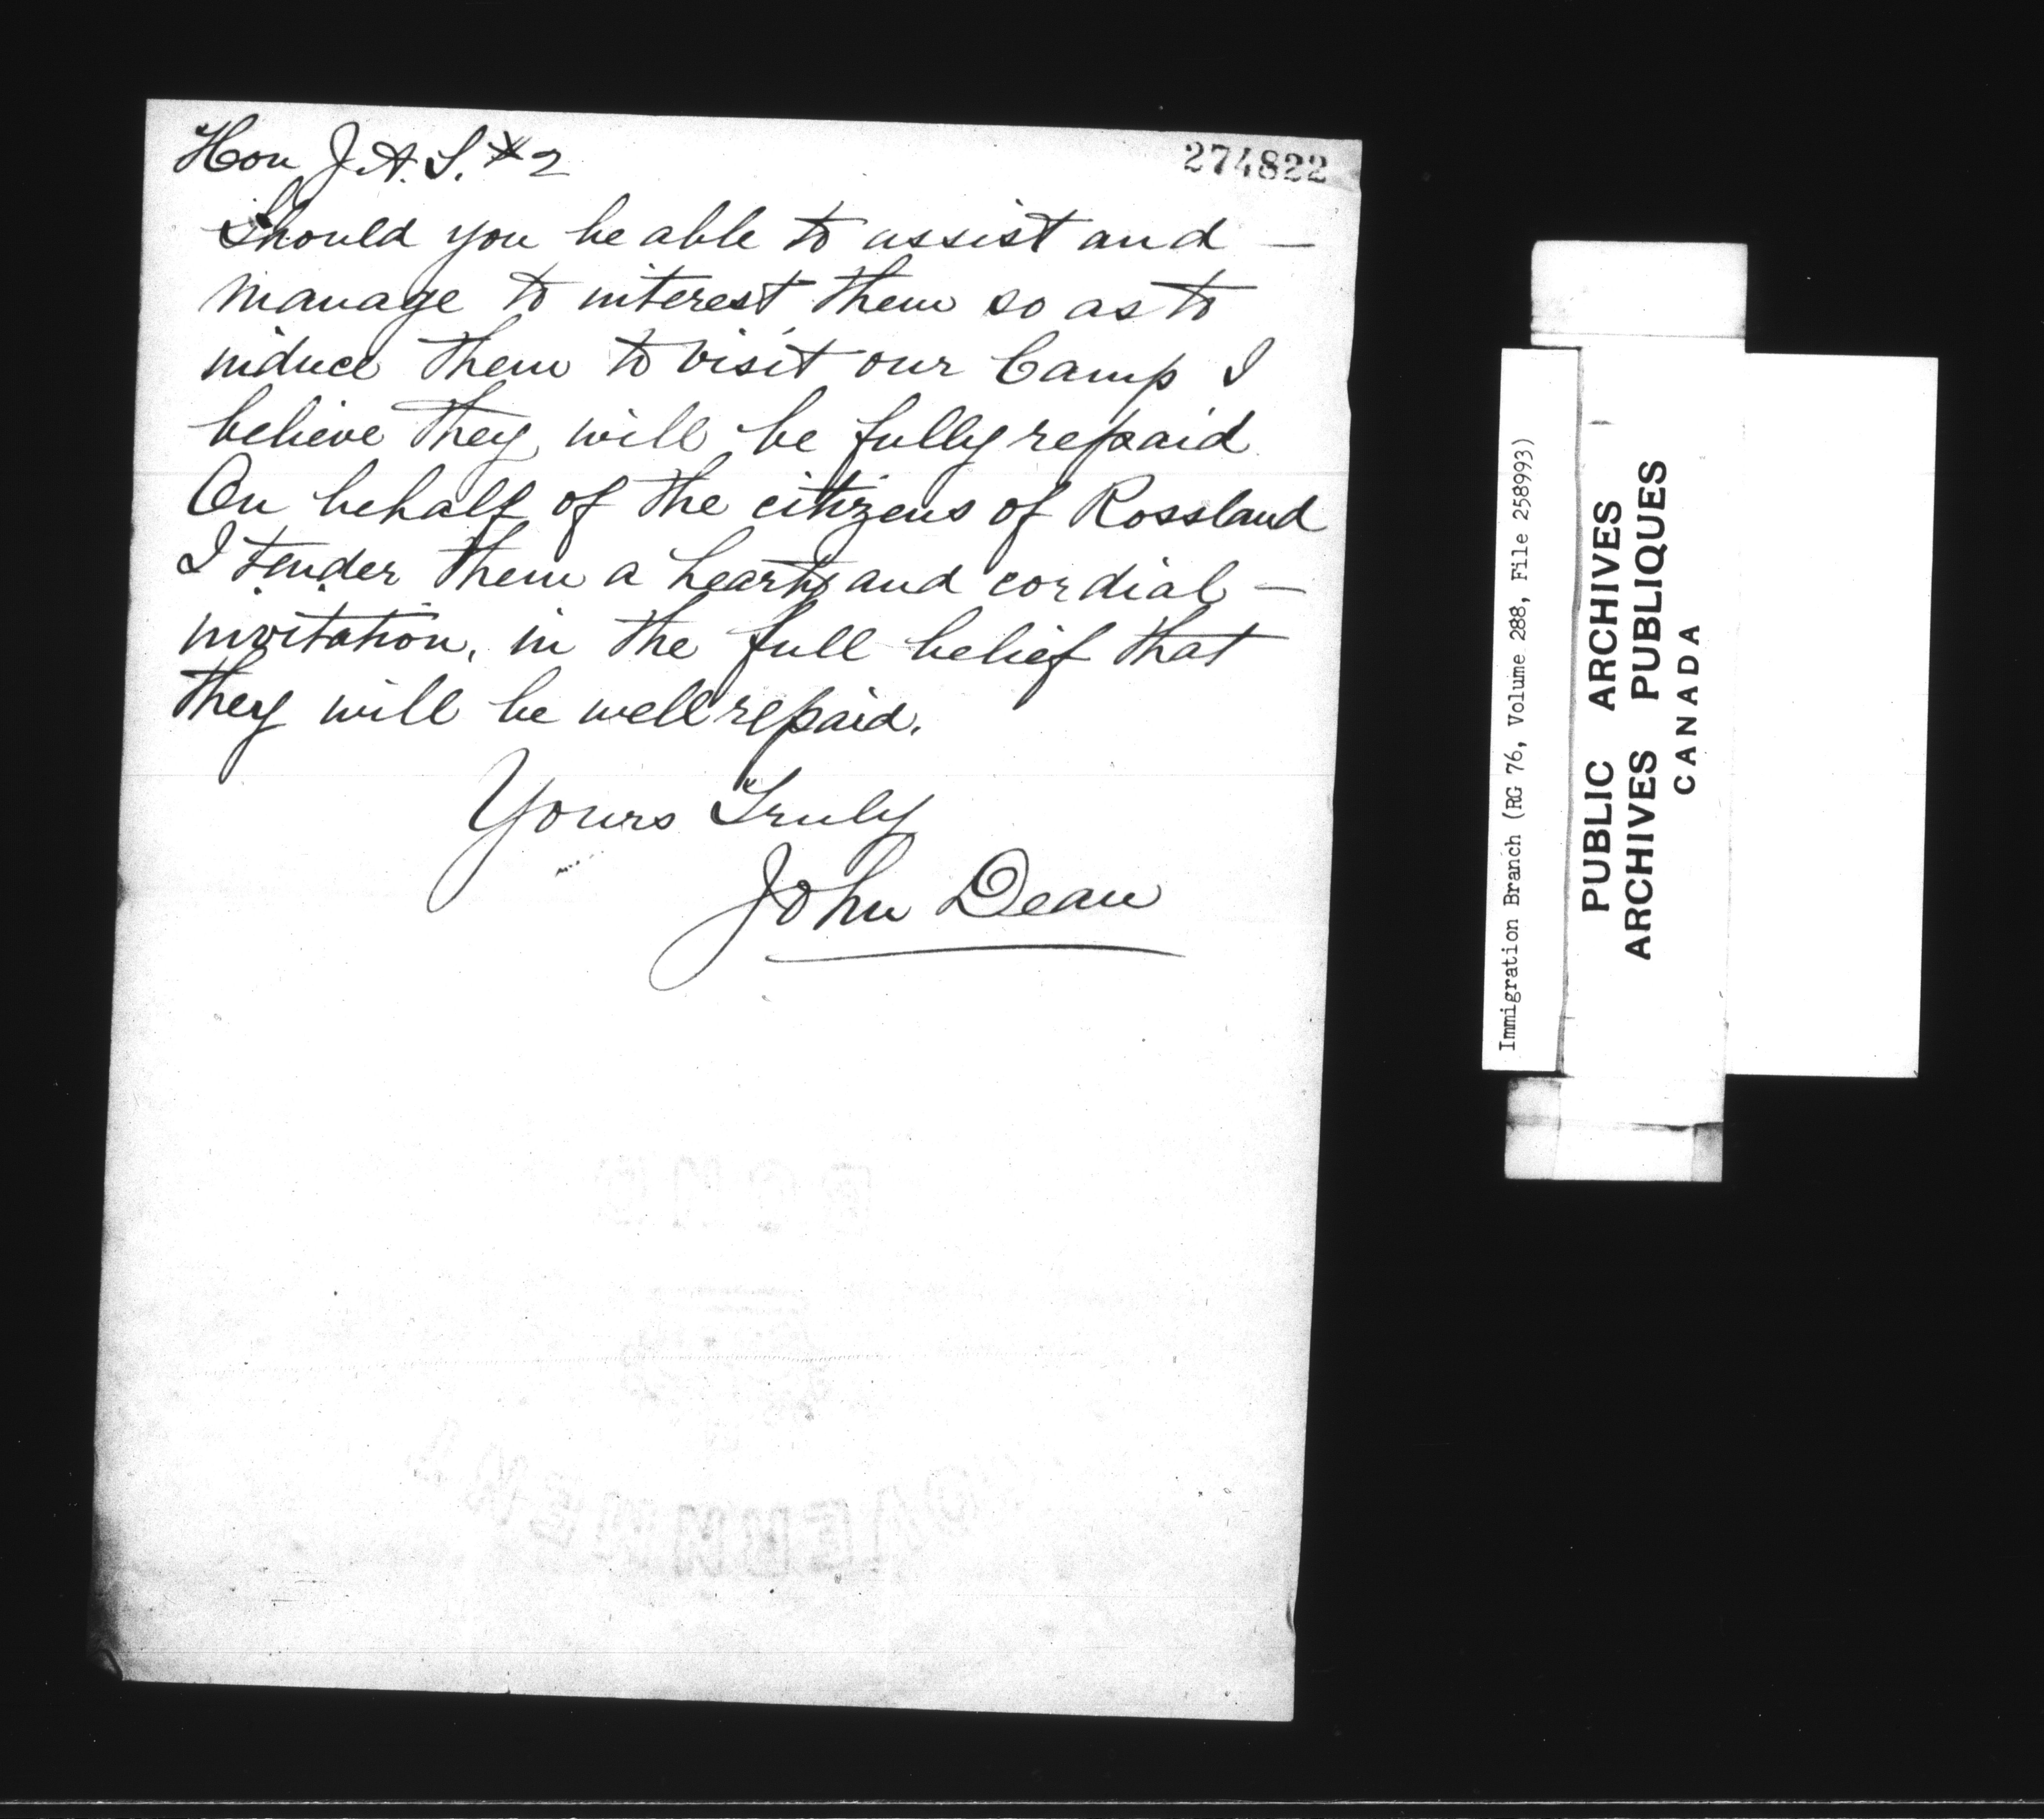 Hon J.A.S. #2
274822
Should you be able to assist and —
manage to interest them so as to
induce them to visit our Camp I
believe they will be fully repaid
On behalf of the citizens of Rossland
I tender them a hearty and cordial —
invitation, in the full belief that
they will be well repaid.
Yours Truly
John Dean
Immigration Branch (RG 76, Volume 288, File 258993)
PUBLIC ARCHIVES
ARCHIVES PUBLIQUES
CANADA